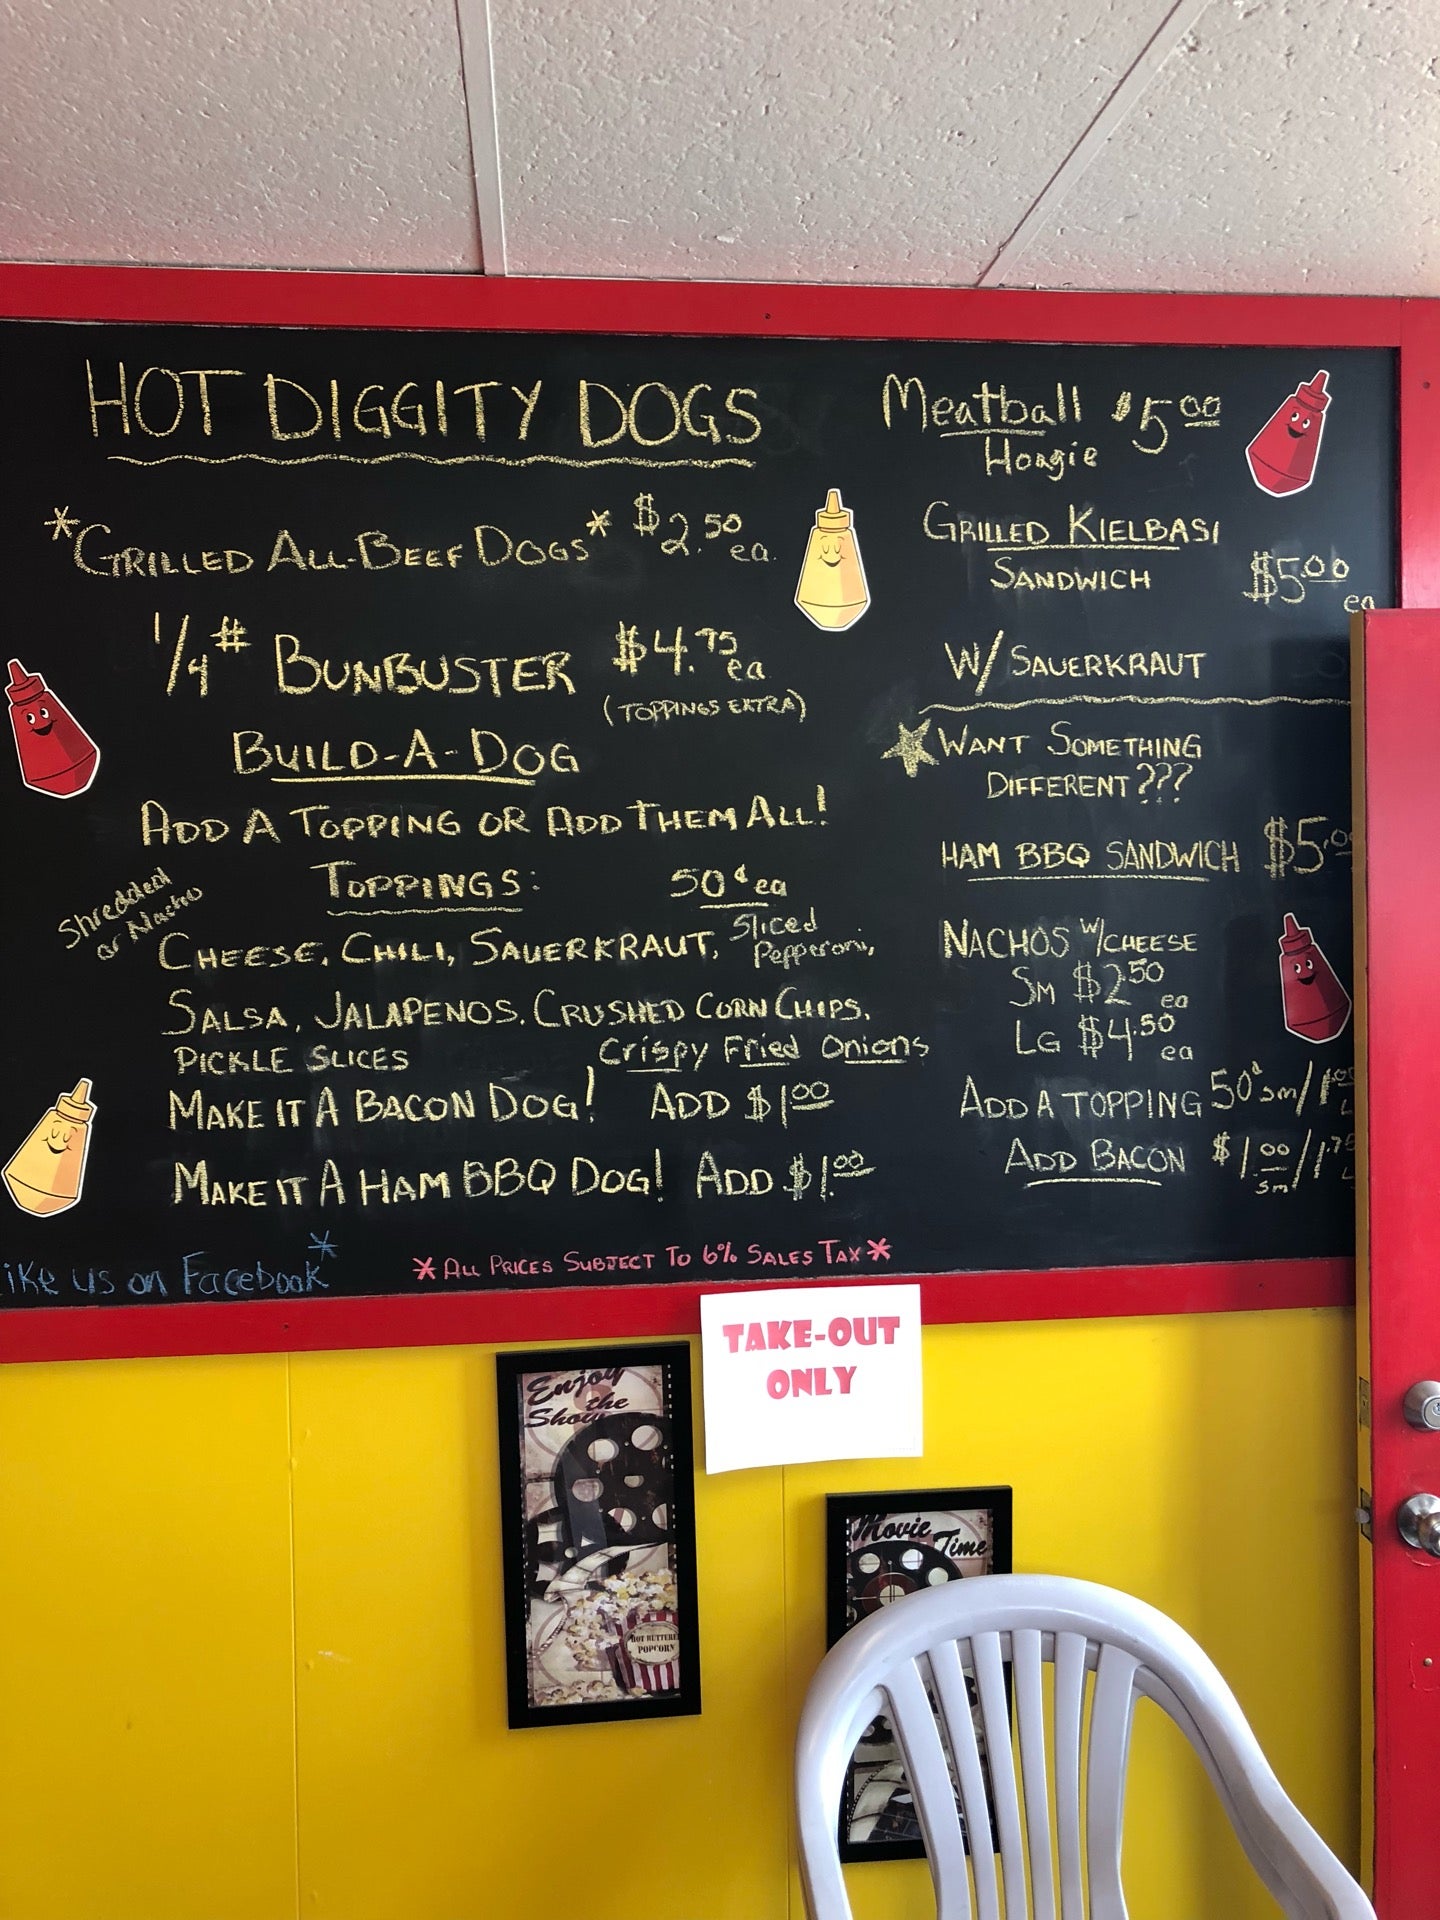 HOT DIGGITY DOGS
*GRILLED ALL-BEEF DOGS* $2.50 ea.
1/4# BUNBUSTER $4.75 ea
(TOPPINGS EXTRA)
BUILD-A-DOG
ADD A TOPPING OR ADD THEM ALL!
TOPPINGS: 50¢ ea
Shredded
or Nacho
CHEESE, CHILI, SAUERKRAUT, Sliced Pepperoni,
SALSA, JALAPENOS, CRUSHED CORN CHIPS,
PICKLE SLICES Crispy Fried Onions
MAKE IT A BACON DOG! ADD $1.00
MAKE IT A HAM BBQ DOG! ADD $1.00
ike us on Facebook*
*ALL PRICES SUBJECT TO 6% SALES TAX*
Meatball $5.00
Hoagie
GRILLED KIELBASI
SANDWICH $5.00 ea
W/ SAUERKRAUT
WANT SOMETHING
DIFFERENT???
HAM BBQ SANDWICH $5.00
NACHOS W/CHEESE
SM $2.50 ea
LG $4.50 ea
ADD A TOPPING 50¢ sm/1.00 L
ADD BACON $1.00 sm/1.75 L
TAKE-OUT
ONLY
Enjoy
the
Show
HOT BUTTERED
POPCORN
Movie
Time